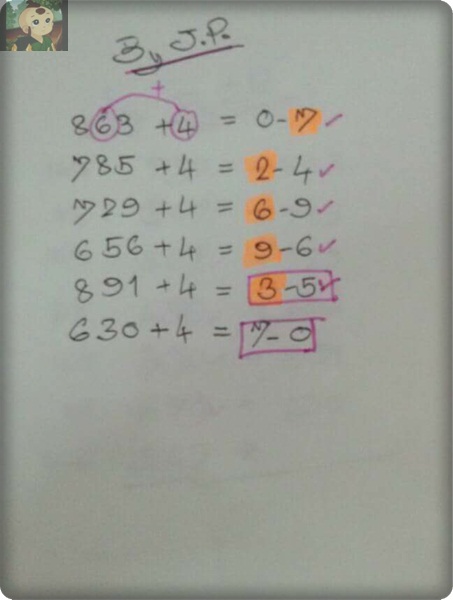 By J.P.
+
863 +4 = 0-7 ✓
785 +4 = 2-4 ✓
729 +4 = 6-9 ✓
656 +4 = 9-6 ✓
891 +4 = 3-5 ✓
630 +4 = 7-0